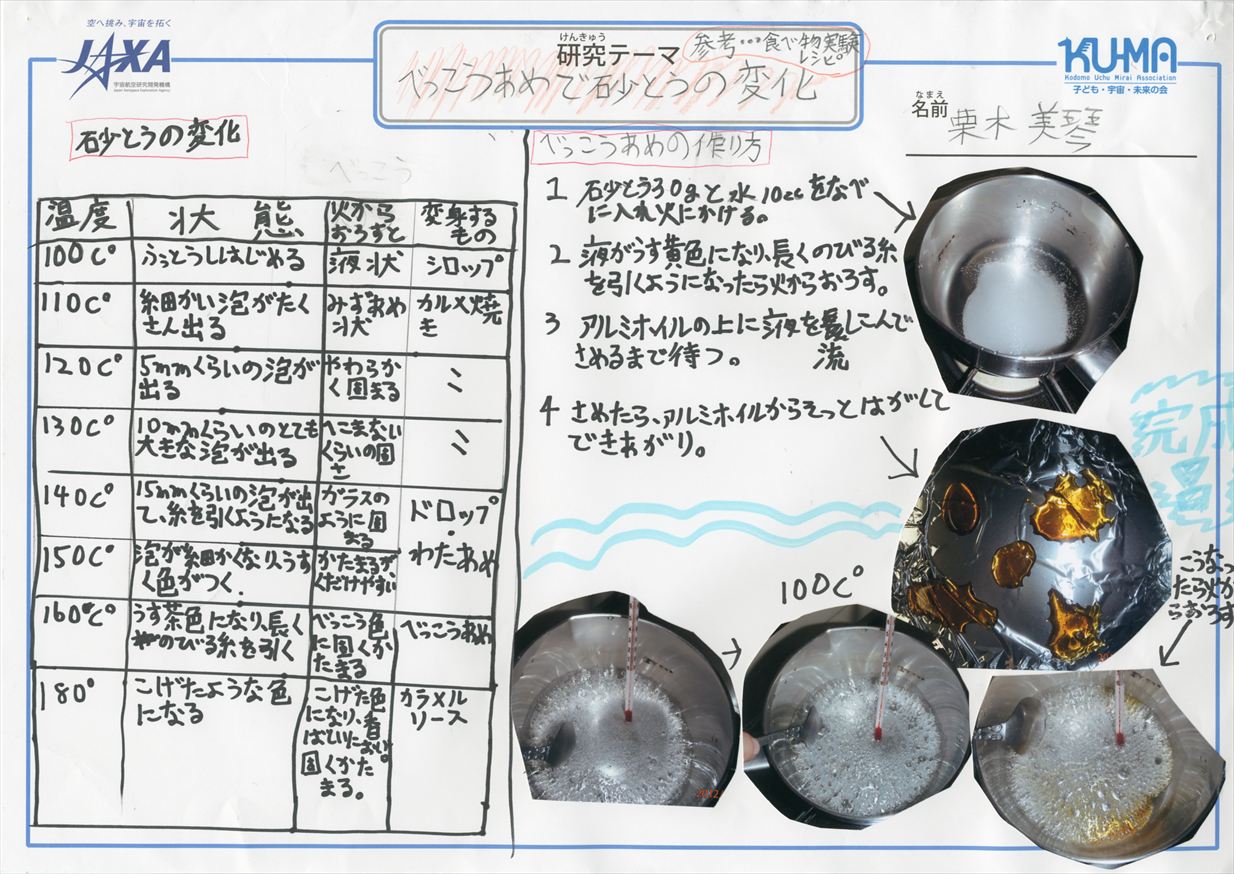 空へ挑み、宇宙を拓く
JAXA
宇宙航空研究開発機構
Japan Aerospace Exploration Agency
けんきゅう
研究テーマ
参考…食べ物実験
レシピ
べっこうあめで砂とうの変化
KU-MA
Kodomo Uchu Mirai Association
子ども・宇宙・未来の会
なまえ
名前
栗木 美琴
砂とうの変化
べっこう
温度 状態 火から
おろすと 変身する
もの
100C° ふっとうしはじめる 液状 シロップ
110C° 細かい泡がたく
さん出る みずあめ
状 カルメ焼
き
120C° 5mmくらいの泡が
出る やわらか
く固まる 〃
130C° 10mmくらいのとても
大きな泡が出る へこまない
くらいの固
さ 〃
140C° 15mmくらいの泡が出
て、糸を引くようになる ガラスの
ように固
まる ドロップ
・
わたあめ
150C° 泡が細かくなり、うす
く色がつく. かたまるが
くだけやすい
160C° うす茶色になり、長く
のびる糸を引く べっこう色
に固くか
たまる べっこうあめ
180° こげたような色
になる こげた色
になり、香
ばしいにおい。
固くかた
まる。 カラメル
ソース
べっこうあめの作り方
1 砂とう30gと水10ccをなべ
に入れ火にかける。
2 液がうす黄色になり、長くのびる糸
を引くようになったら火からおろす。
3 アルミホイルの上に液を流しこんで
さめるまで待つ。
4 さめたら、アルミホイルからそっとはがして
できあがり。
完成
100C°
こうなっ
たら火か
らおろす